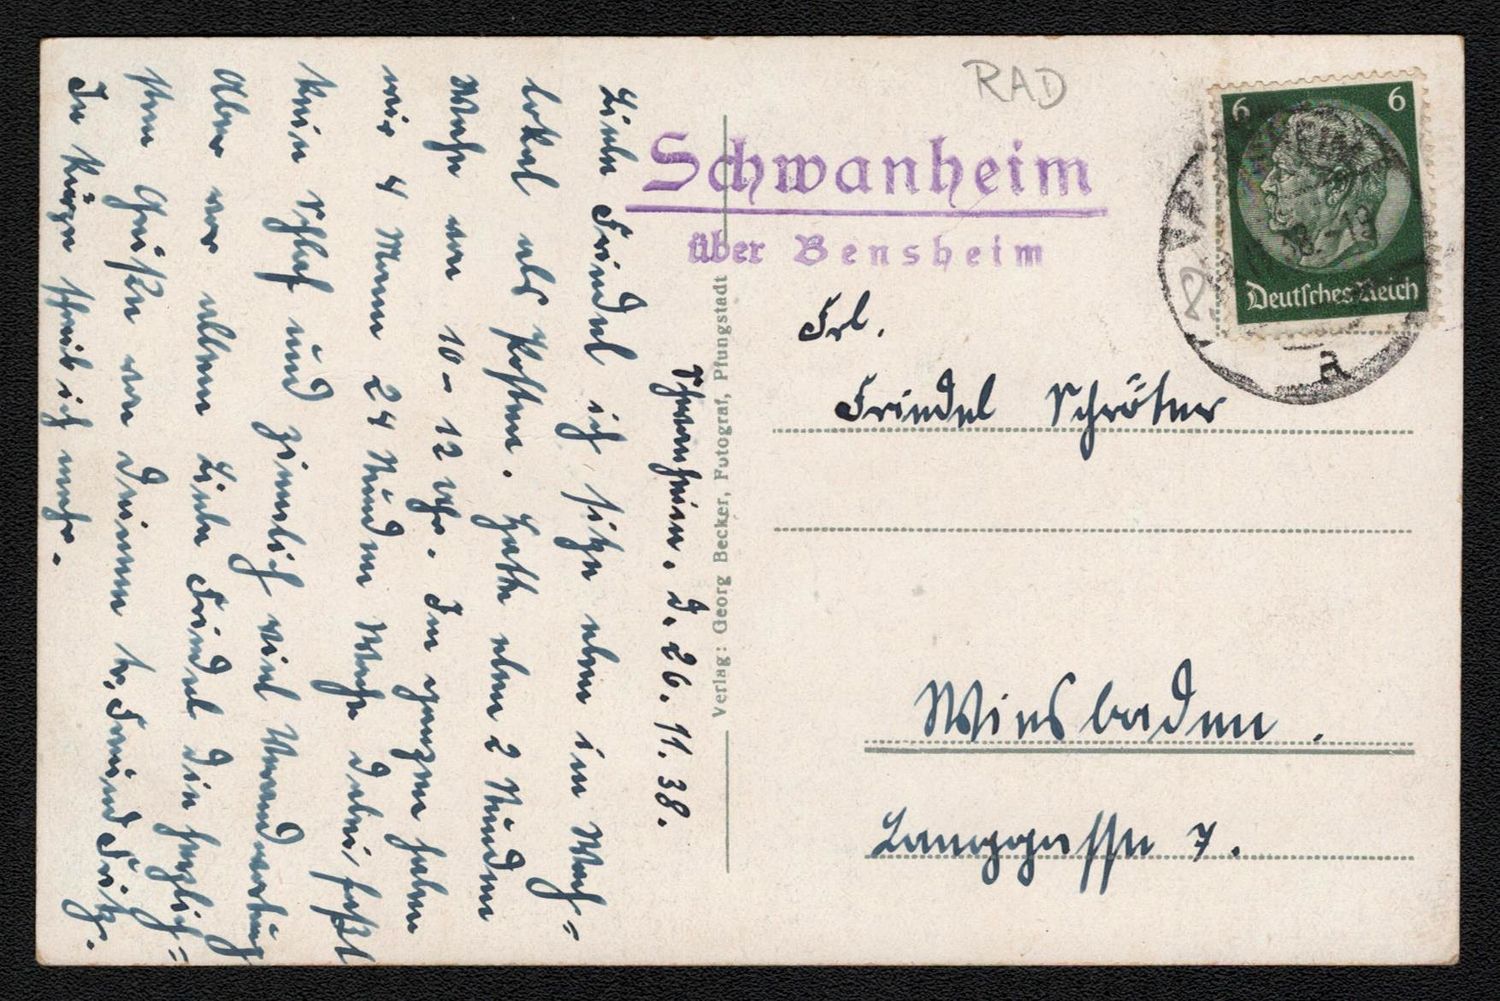 RAD
Schwanheim
über Bensheim
6 6
Deutsches Reich
a
Frl.
Friedel Schröter
Wiesbaden.
Langgasse 7.
Verlag: Georg Becker, Fotograf, Pfungstadt
Schwanheim, d. 26.11.38.
Liebe Friedel ich sitze eben im Wach=
lokal als Posten. Hatte eben 2 Stunden
Wache von 10-12 Uhr. Im ganzen haben
wir 4 Mann 24 Stunden Wache dabei fast
kein Schlaf und ziemlich viel Verantwortung
Aber vor allem Liebe Friedel die herzlich=
sten Grüße von Deinem Freund Fritz.
In Kürze schreib ich mehr.